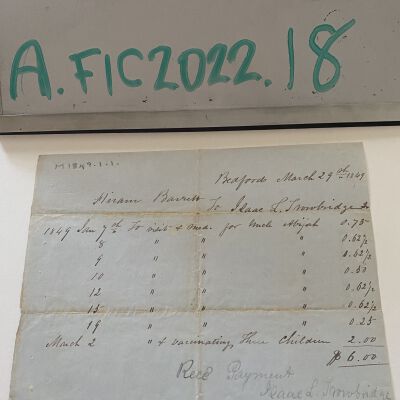 A.FIC2022.18
M1849.1.1.
Bedford March 29th 1849
Hiram Barrett
To Isaac L. Trowbridge Dr
1849 Jan 7th To visit & med. for Uncle Abijah 0.75
8 " " " 0.62 1/2
9 " " " 0.62 1/2
10 " " " 0.50
12 " " " 0.62 1/2
15 " " " 0.62 1/2
19 " " " 0.25
March 2 " & vaccinating Three Children 2.00
$ 6.00
Recd Payment
Isaac L. Trowbridge